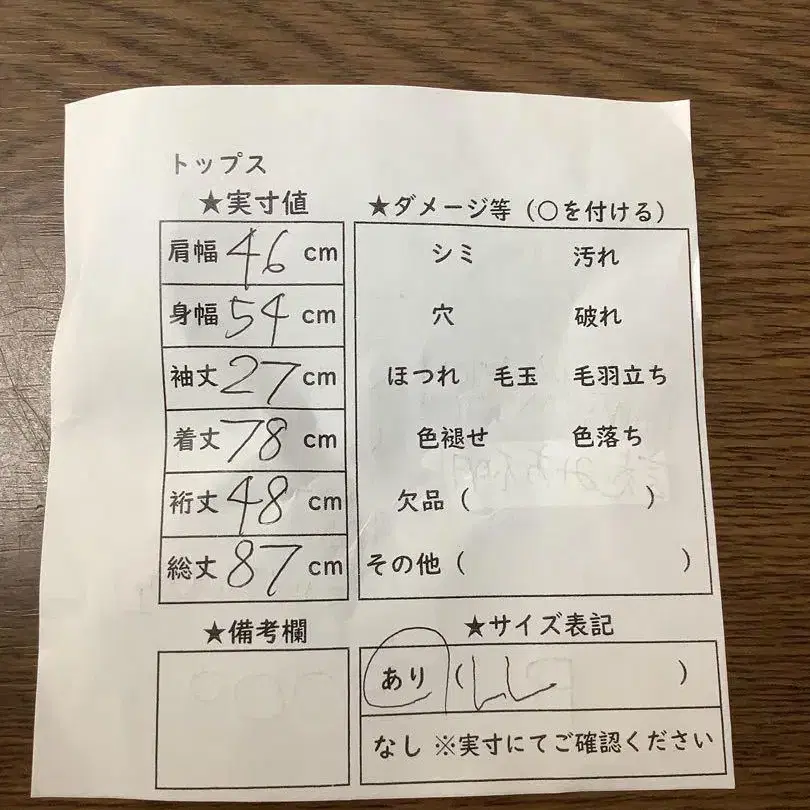 トップス
★実寸値
肩幅 46 cm
身幅 54 cm
袖丈 27 cm
着丈 78 cm
裄丈 48 cm
総丈 87 cm
★ダメージ等（○を付ける）
シミ 汚れ
穴 破れ
ほつれ 毛玉 毛羽立ち
色褪せ 色落ち
欠品（ ）
その他（ ）
★備考欄
★サイズ表記
あり（LL ）
なし ※実寸にてご確認ください